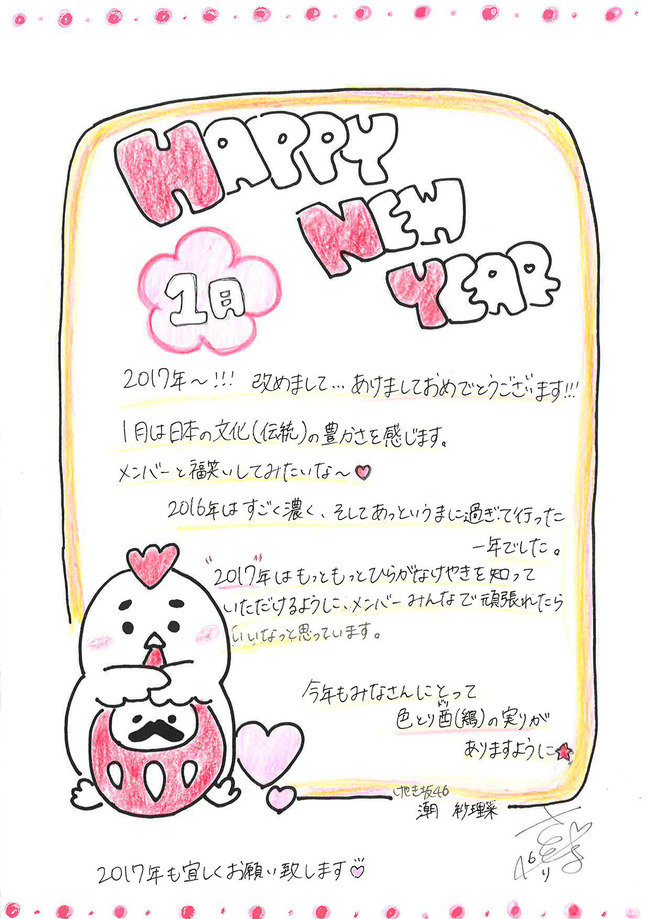 HAPPY
NEW
YEAR
1月
2017年〜!!! 改めまして…あけましておめでとうございます!!!
1月は日本の文化(伝統)の豊かさを感じます。
メンバーと福笑いしてみたいな〜♥
2016年はすごく濃く、そしてあっというまに過ぎて行った
一年でした。
"2017"年はもっともっとひらがなけやきを知って
いただけるように、メンバーみんなで頑張れたら
いいなっと思っています。
今年もみなさんにとって
色とり酉(鶏)の実りが
ドリ
ありますように★
けやき坂46
潮 紗理菜
2017年も宜しくお願い致します♡